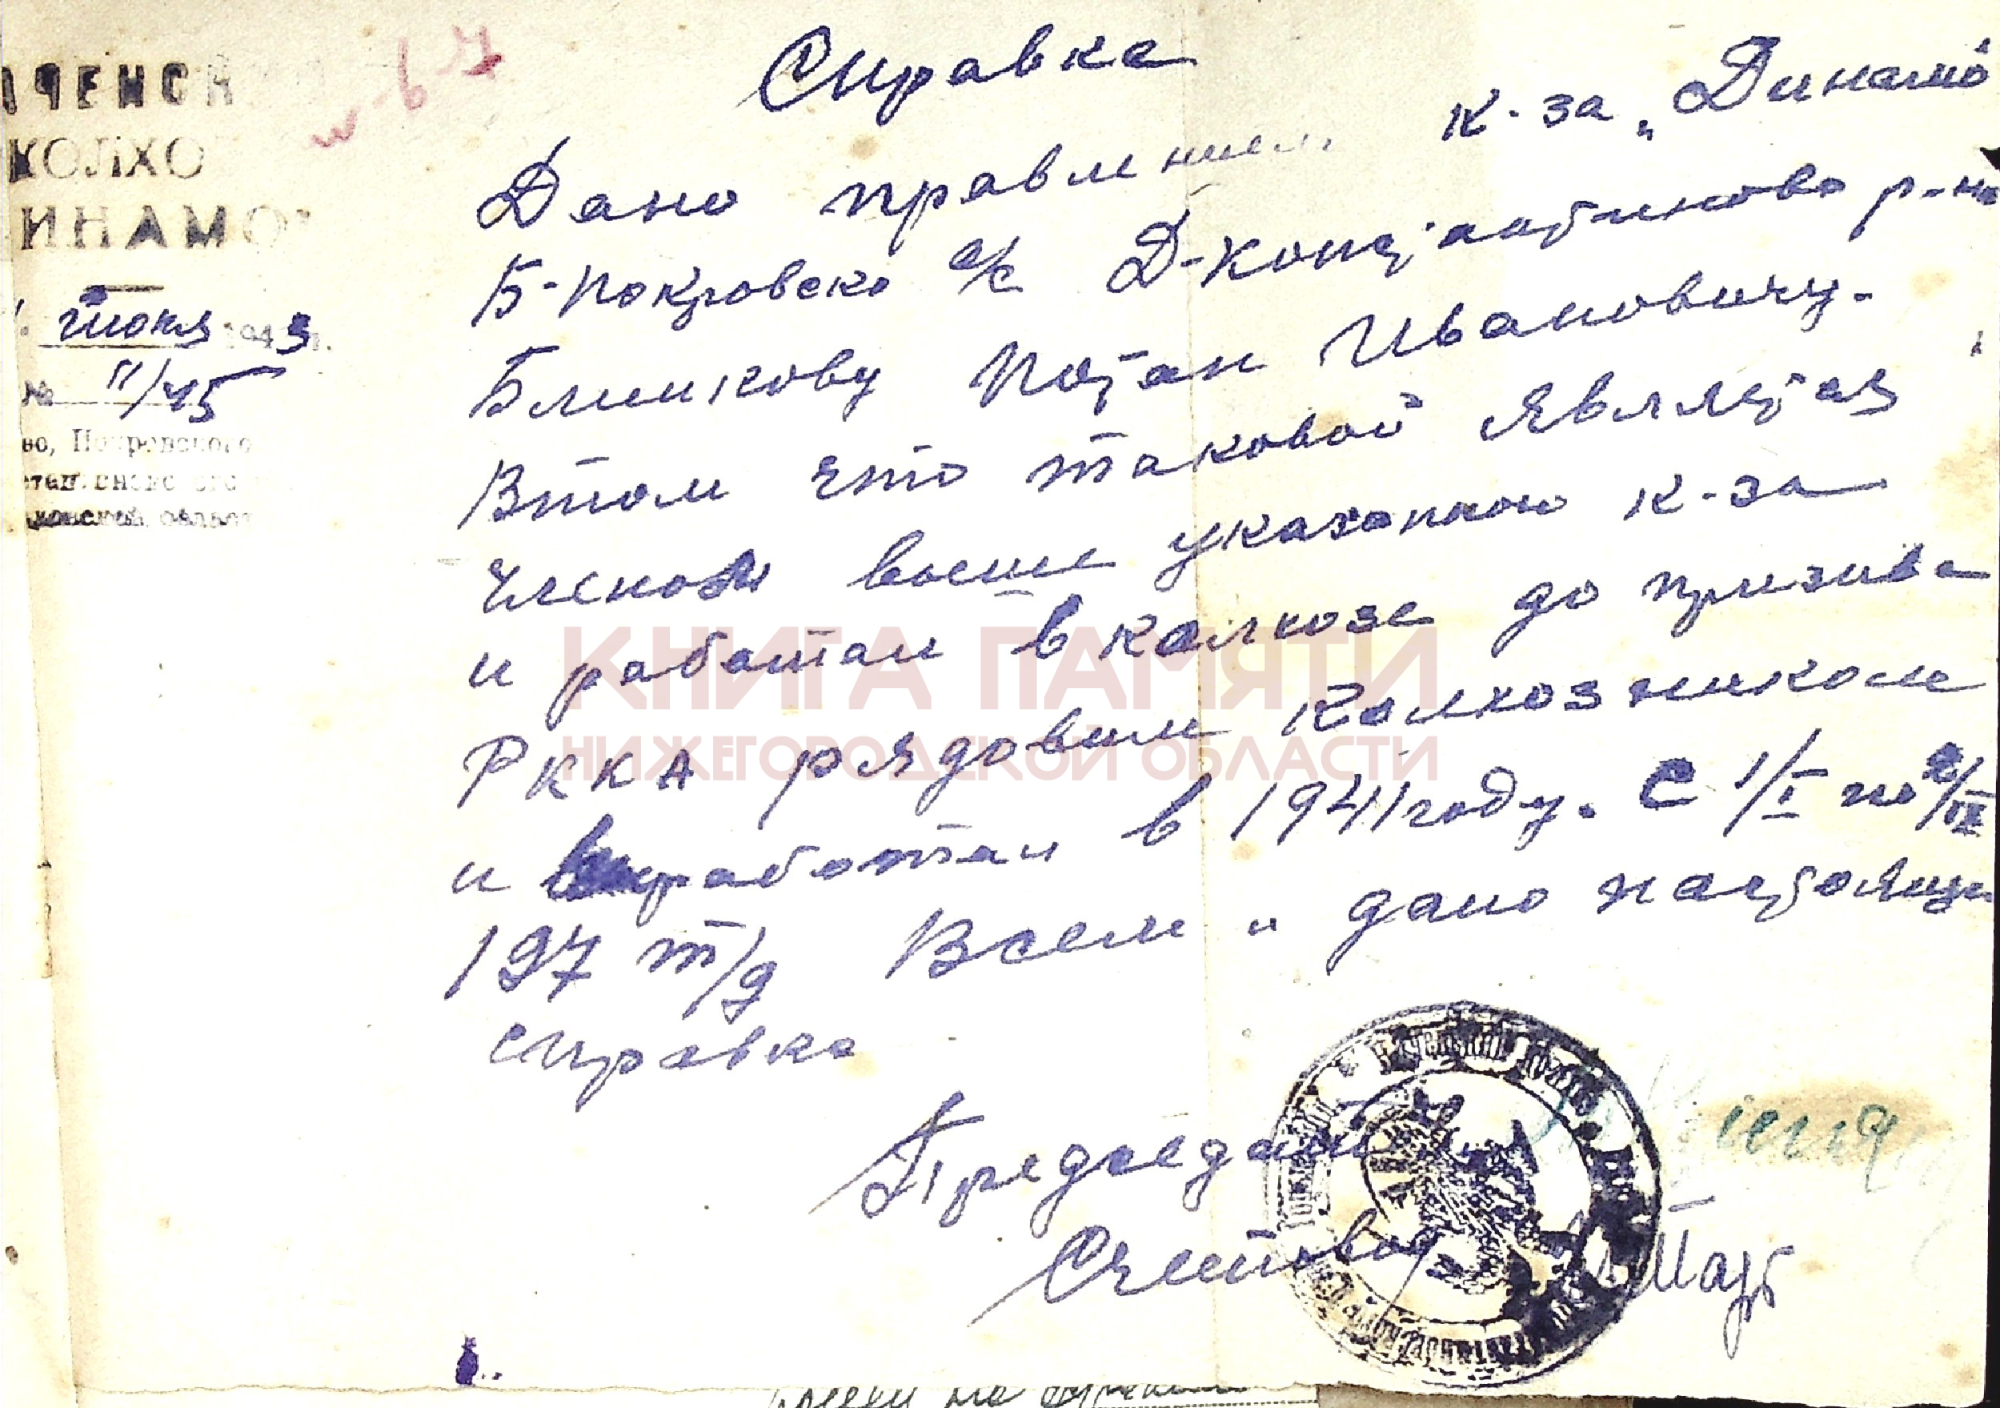 АЧЕНСК
КОЛХО
ИНАМО
Июня 1943 г.
№ 11/45
во, Покровского
Справка
Дано правлением к-за „Динамо
Б-Покровско с/с Д-Константиново р-на
Блинкову Потап Ивановичу.
Втом что таковой является
членом выше указанного к-за
и работал в колхозе до призыва
РККА рядовым колхозником
и выработал в 1941 году. С 1/I по
197 т/д Всем „ дано настоящи
справка
Председат
Счетовод
КНИГА ПАМЯТИ
НИЖЕГОРОДСКОЙ ОБЛАСТИ